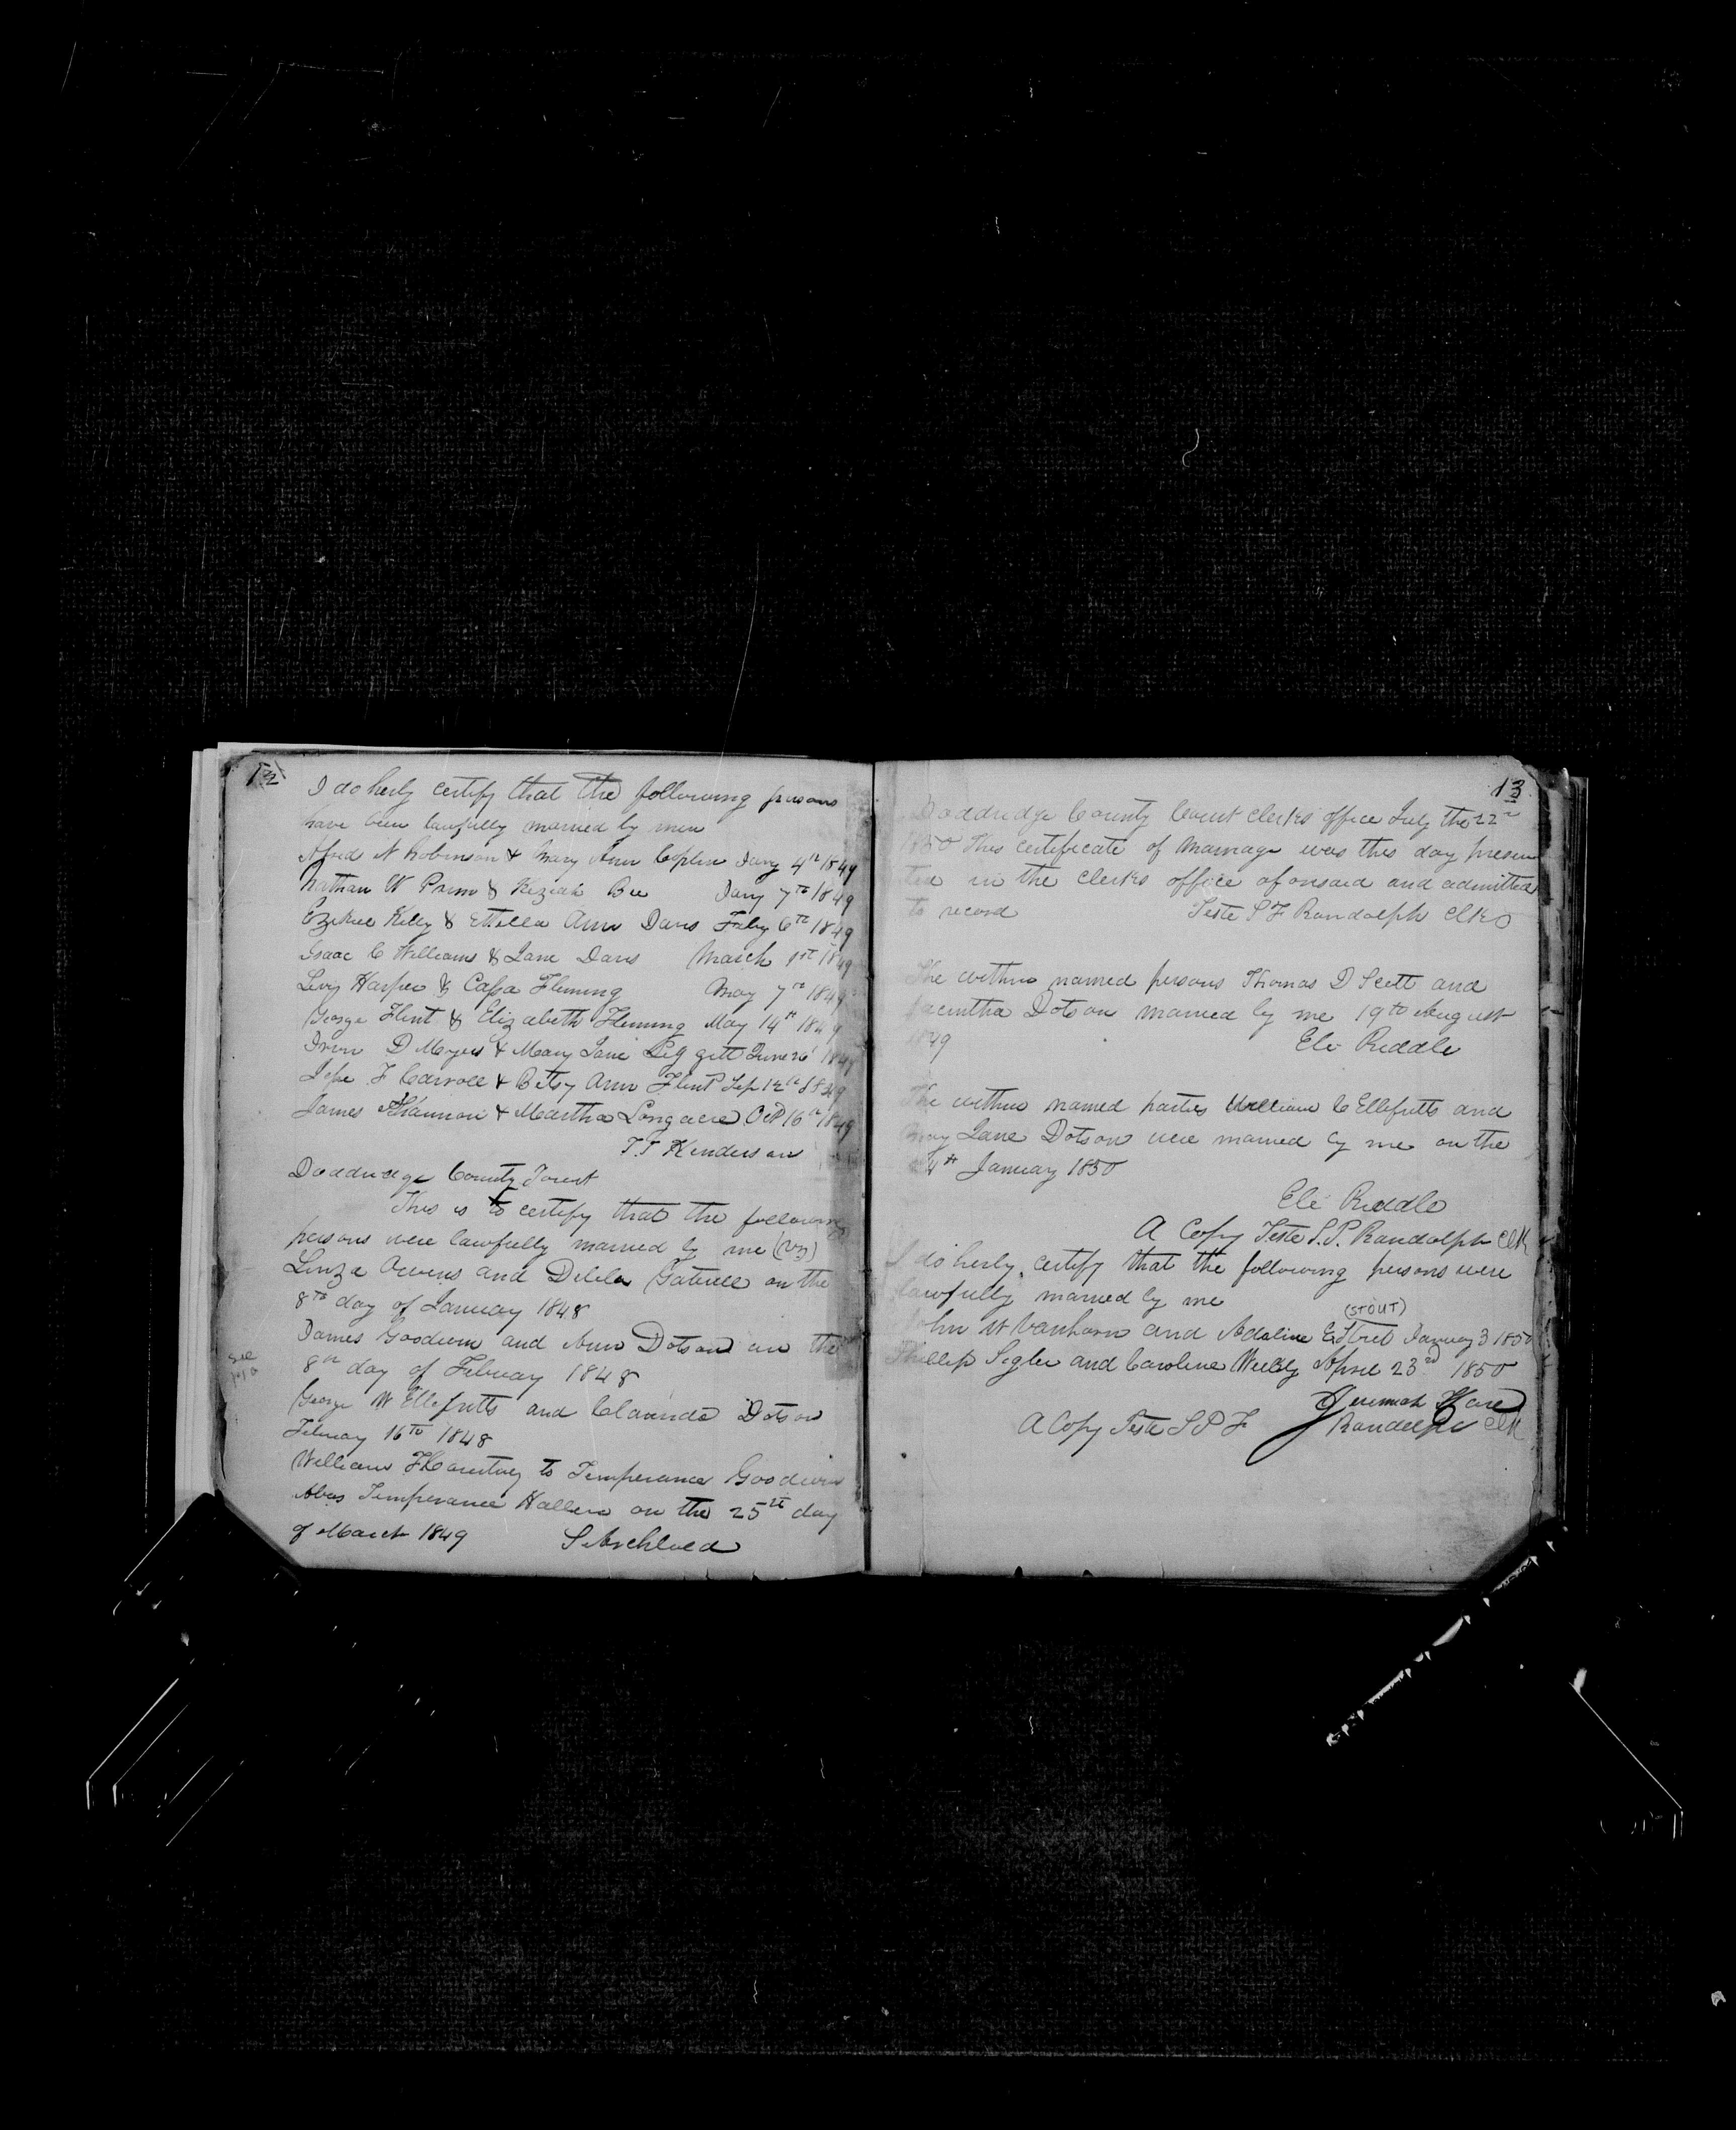 12
I do herby certify that the following persons
have been lawfully married by men
Alfred N Robinson & Mary Ann Coplin Jany 4th 1849
Nathan W Prim & Keziah Bee Jany 7th 1849
Ezekiel Kelly & Ann Davis Feby 6th 1849
Isaac C Williams & Jane Davis March 1st 1849
Levy Harper & Cassa Fleming May 7th 1849
George Flint & Elizabeth Fleming May 14th 1849
D Moyers & Mary Jane Leggett June 26
F Carroll & Betsy Ann Flint Sep 12th 1849
James & Martha Longacre Oct 16th 1849
Kinderson
Doddridge County Towit
This is to certify that the following
persons were lawfully married by me (viz)
Linza Owens and Delila on the
8th day of January 1848
James Goodwin and Ann Dotson on the
see
8th day of Februay 1848
George W Ellefritts and Clarinda Dotson
Februay 16th 1848
William to Temperance Goodwin
Temperance on the 25th day
of March 1849 S Archbold
13
Doddridge County Court Clerks office July the 22n
1850 This certificate of Marriage was this day presen
ted in the Clerks office aforesaid and admitted
to record Teste S F Randolph Clk
The within named persons Thomas D Scott and
Jacintha Dotson married by me 19th August
1849 Eli Riddle
The within named parties William C Ellefritts and
Mary Jane Dotson were married by me on the
4th January 1850
Eli Riddle
A Copy Teste S.P. Randolph Clk
I do herby certify that the following persons were
lawfully married by me
(STOUT)
John W Vanhorn and Adaline E January 3 1850
Phillip Sigler and Caroline Weekly April 23rd 1850
Jeremiah Hare
A Copy Teste S P F Randolph Clk